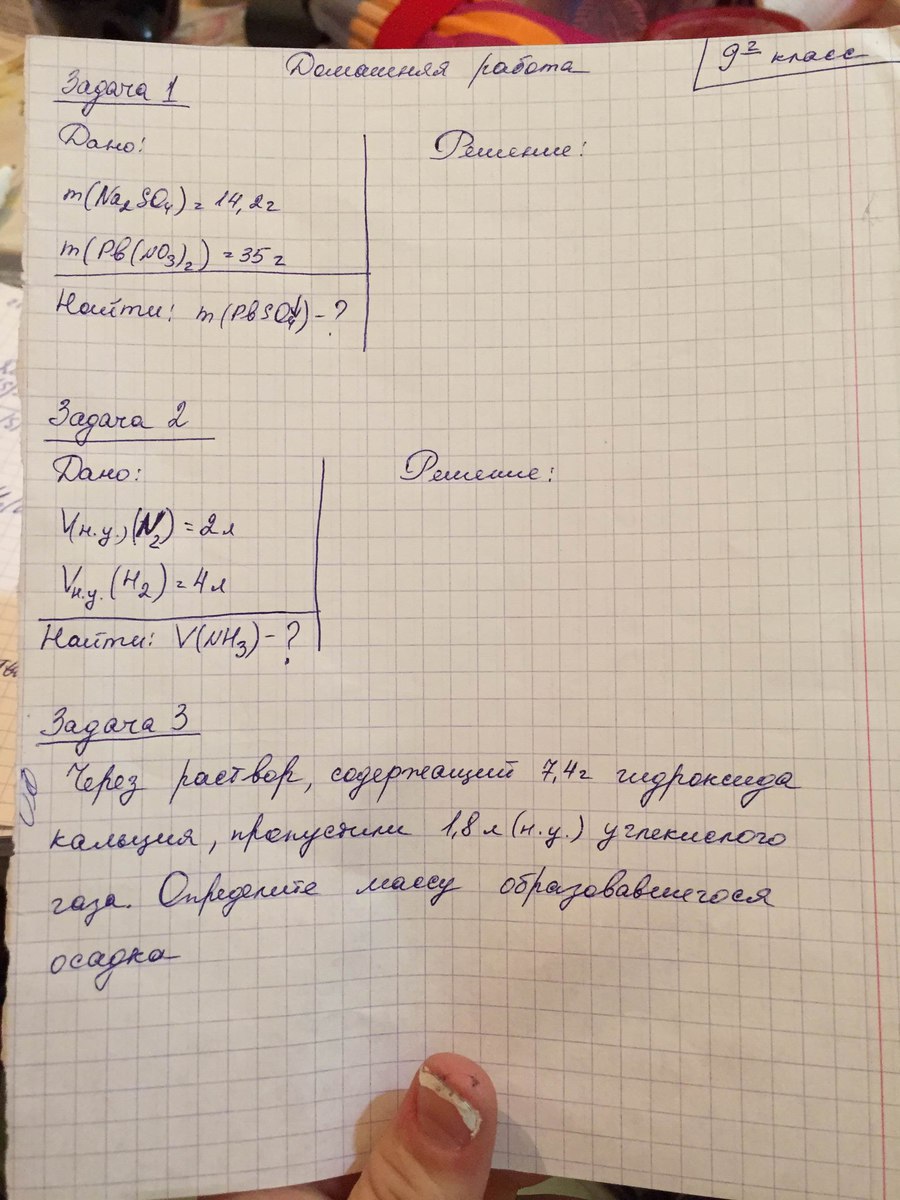 Домашняя работа
9г класс
Задача 1
Дано:
Решение:
m(Na₂SO₄) = 14,2г
m(Pb(NO₃)₂) = 35г
Найти: m(PbSO₄↓) - ?
Задача 2
Дано:
Решение:
V(н.у.)(N₂) = 2л
Vн.у.(H₂) = 4л
Найти: V(NH₃) - ?
Задача 3
Через раствор, содержащий 7,4г гидроксида
кальция, пропустили 1,8л (н.у.) углекислого
газа. Определите массу образовавшегося
осадка